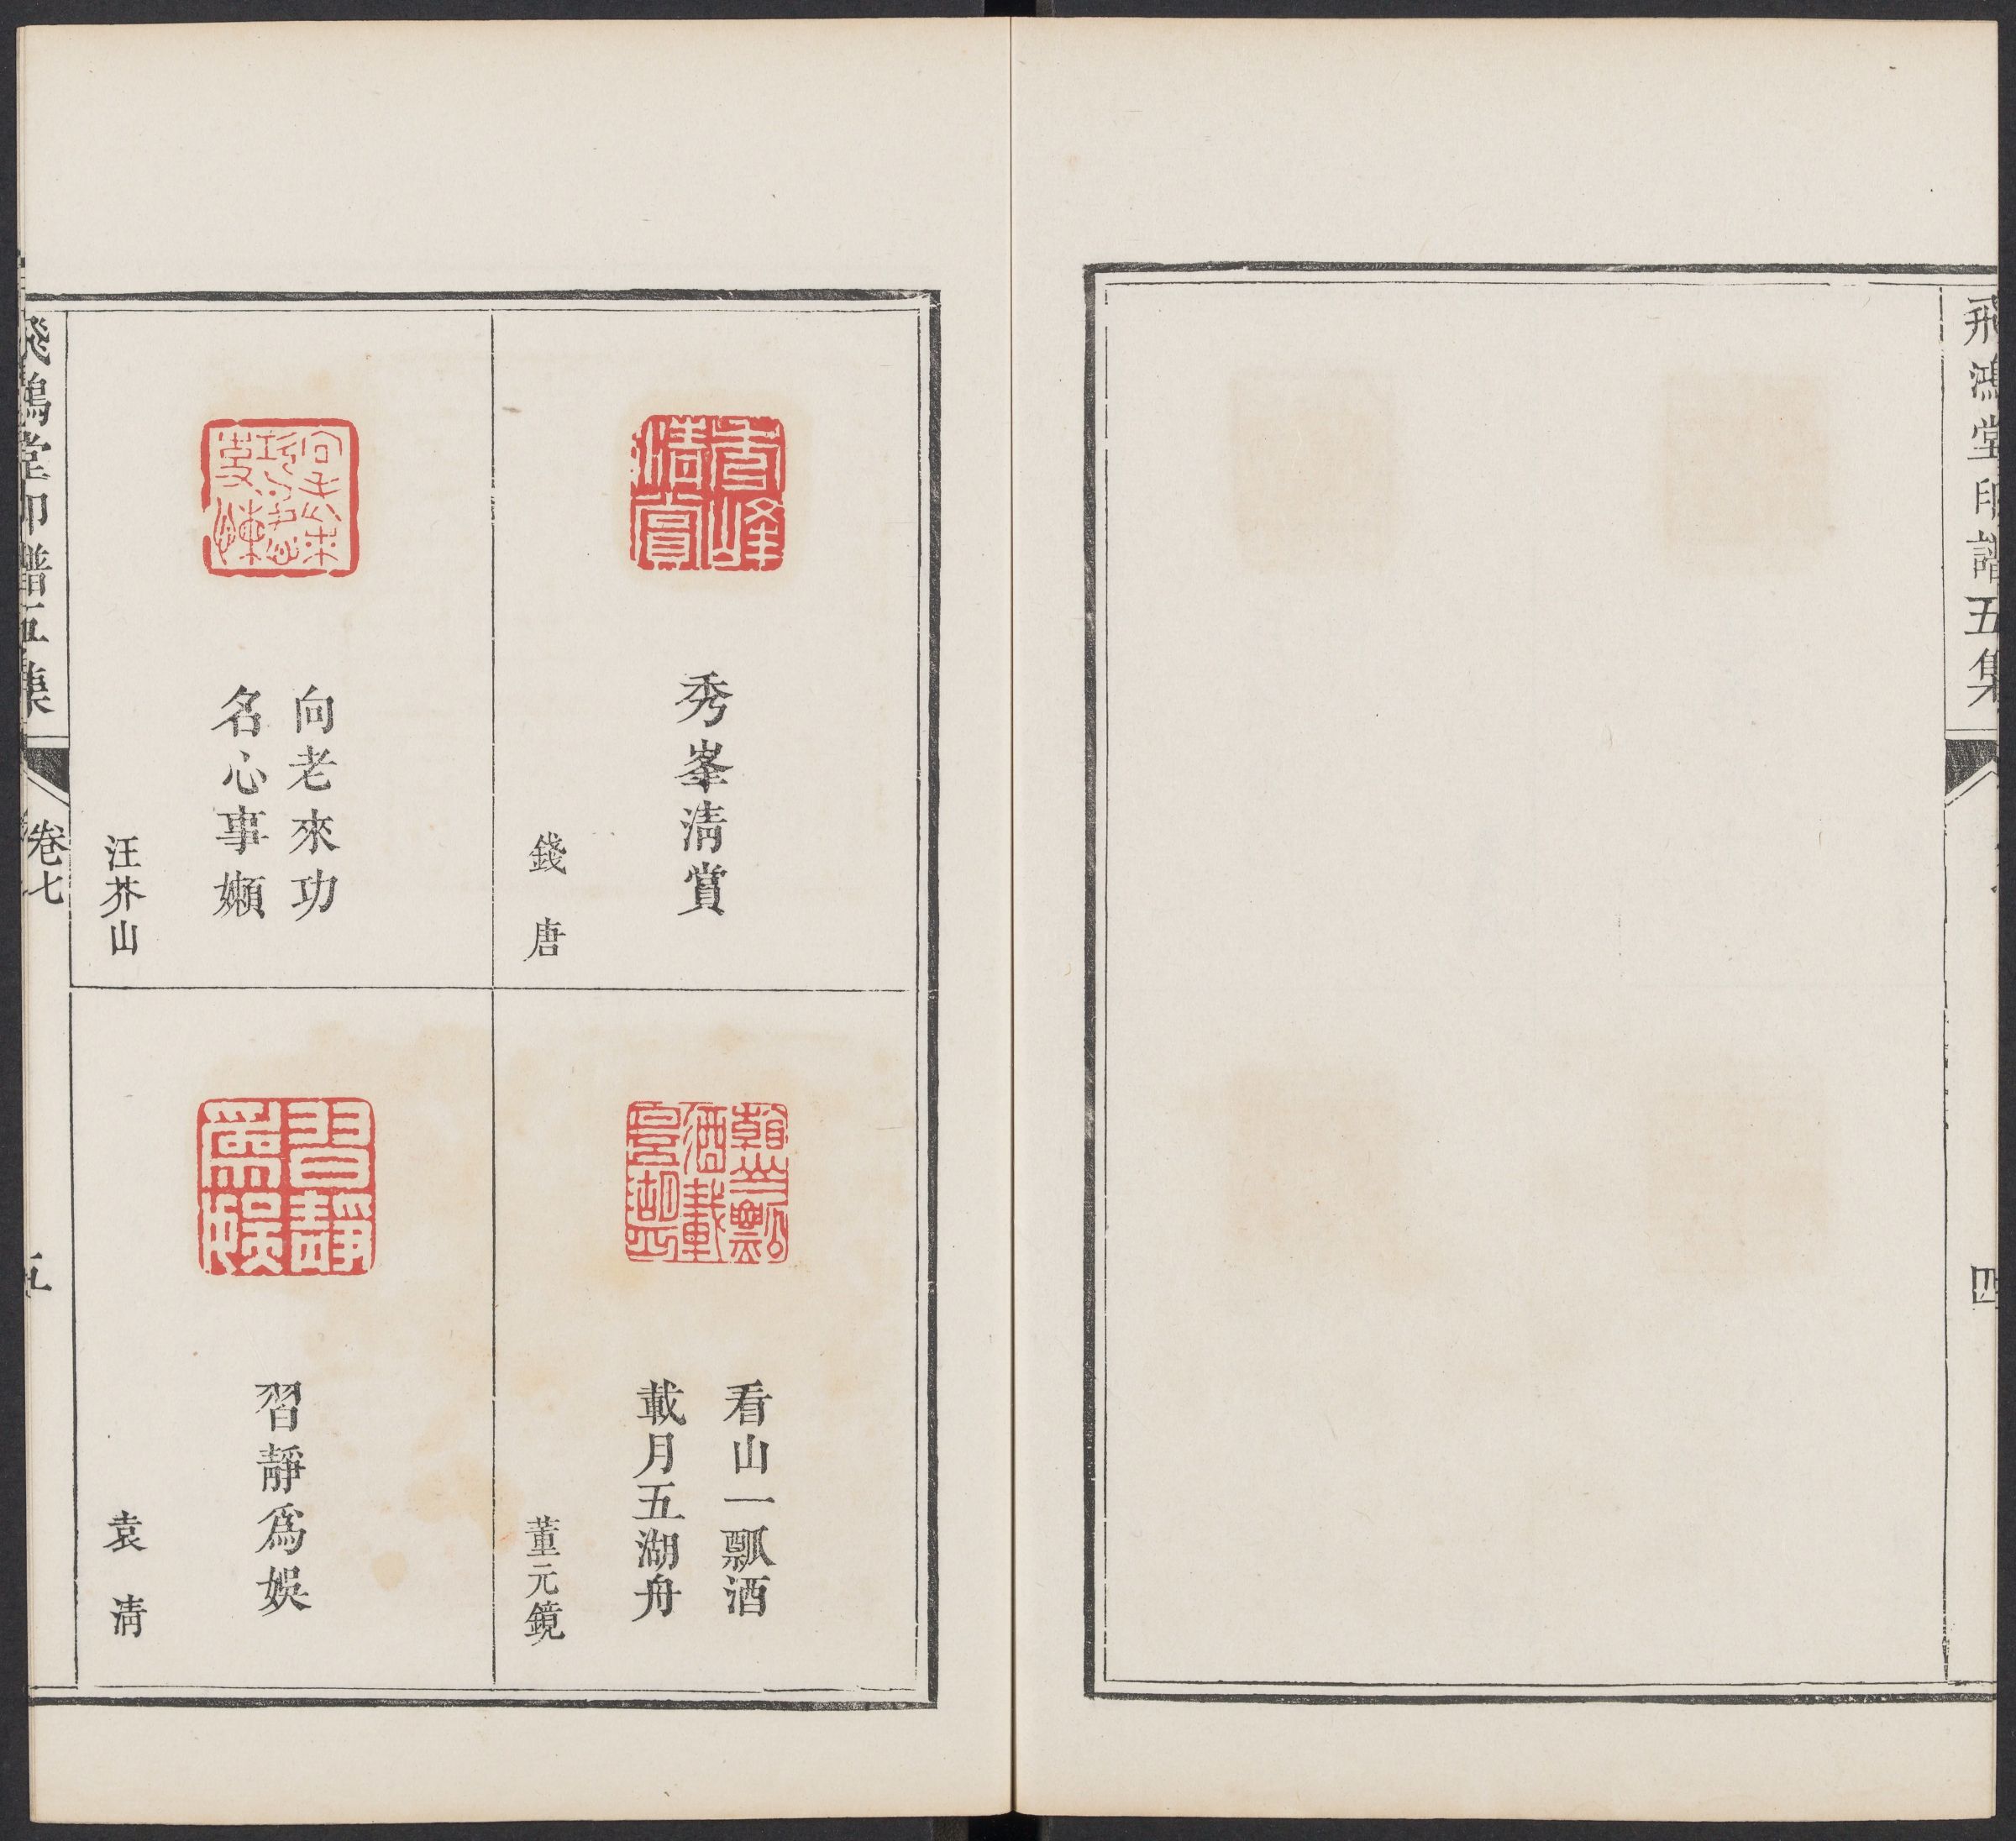 飛鴻堂印譜五集
四
秀峯清賞
錢唐
向老來功
名心事嬾
汪芥山
看山一瓢酒
載月五湖舟
董元鏡
習靜爲娛
袁清
飛鴻堂印譜五集
卷七
五